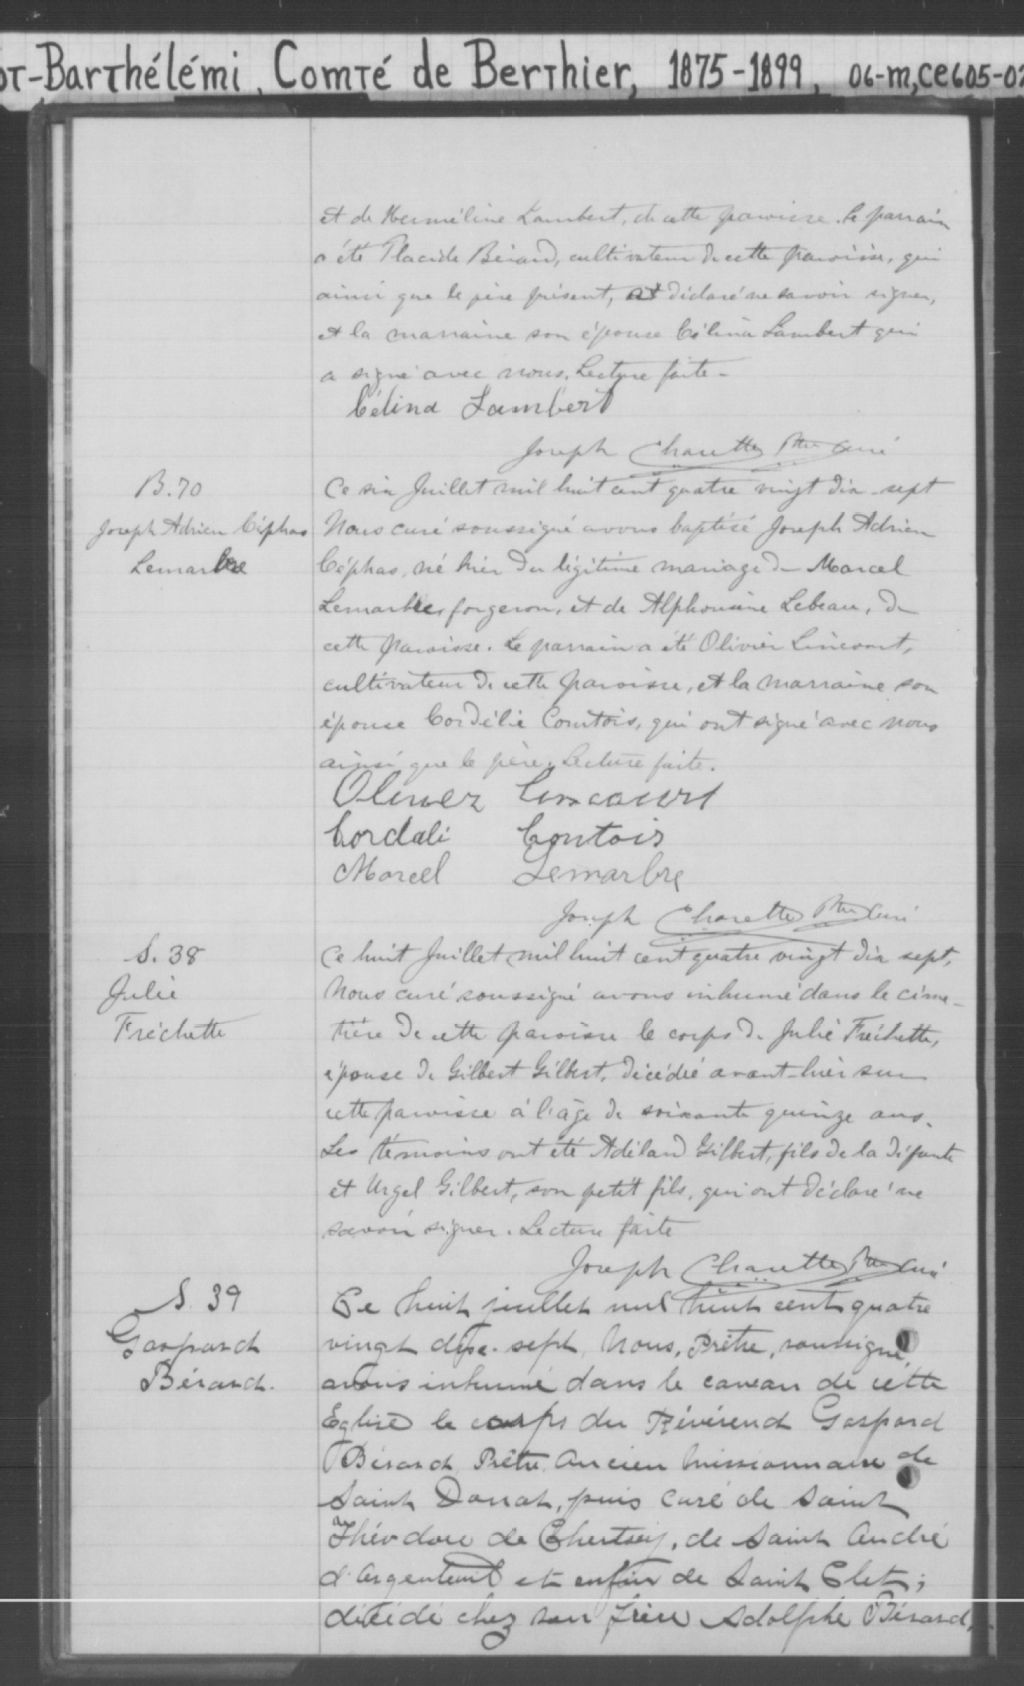 ot-Barthélémi, Comté de Berthier, 1875-1899, 06-m,ce605-02
et de Herméline Lambert, de cette paroisse. Le parrain
a été Placide Bérard, cultivateur de cette paroisse, qui
ainsi que le père présent, a déclaré ne savoir signer,
et la marraine son épouse Célina Lambert qui
a signé avec nous. Lecture faite -
Célina Lambert
Joseph Charette Ptre Curé
B. 70
Joseph Adrien Céphas
Lemarbre
Ce six Juillet mil huit cent quatre vingt dix-sept
Nous curé soussigné avons baptisé Joseph Adrien
Céphas, né hier du légitime mariage de Marcel
Lemarbre, forgeron, et de Alphonsine Lebeau, de
cette paroisse. Le parrain a été Olivier Lincourt,
cultivateur de cette paroisse, et la marraine son
épouse Cordélie Comtois, qui ont signé avec nous
ainsi que le père. Lecture faite.
Olivier Lincourt
Cordali Contois
Marcel Lemarbre
Joseph Charette Ptre Curé
S. 38
Julie
Fréchette
Ce huit Juillet mil huit cent quatre vingt dix sept,
Nous curé soussigné avons inhumé dans le cime-
tière de cette paroisse le corps de Julie Fréchette,
épouse de Gilbert Gilbert, décédée avant-hier sur
cette paroisse à l'âge de soixante quinze ans.
Les témoins ont été Adélard Gilbert, fils de la défunte
et Urgel Gilbert, son petit fils, qui ont déclaré ne
savoir signer. Lecture faite
Joseph Charette Ptre Curé
S. 39
Gaspard
Bérard.
Ce huit juillet mil huit cent quatre
vingt dix-sept, Nous, Prêtre, soussigné
avons inhumé dans le caveau de cette
Eglise le corps du Révérend Gaspard
Bérard Prêtre Ancien Missionnaire de
Saint Donat, puis curé de Saint
Théodore de Chertsey, de Saint André
d'Argenteuil et enfin de Saint Clet;
décédé chez son frère Adolphe Bérard,